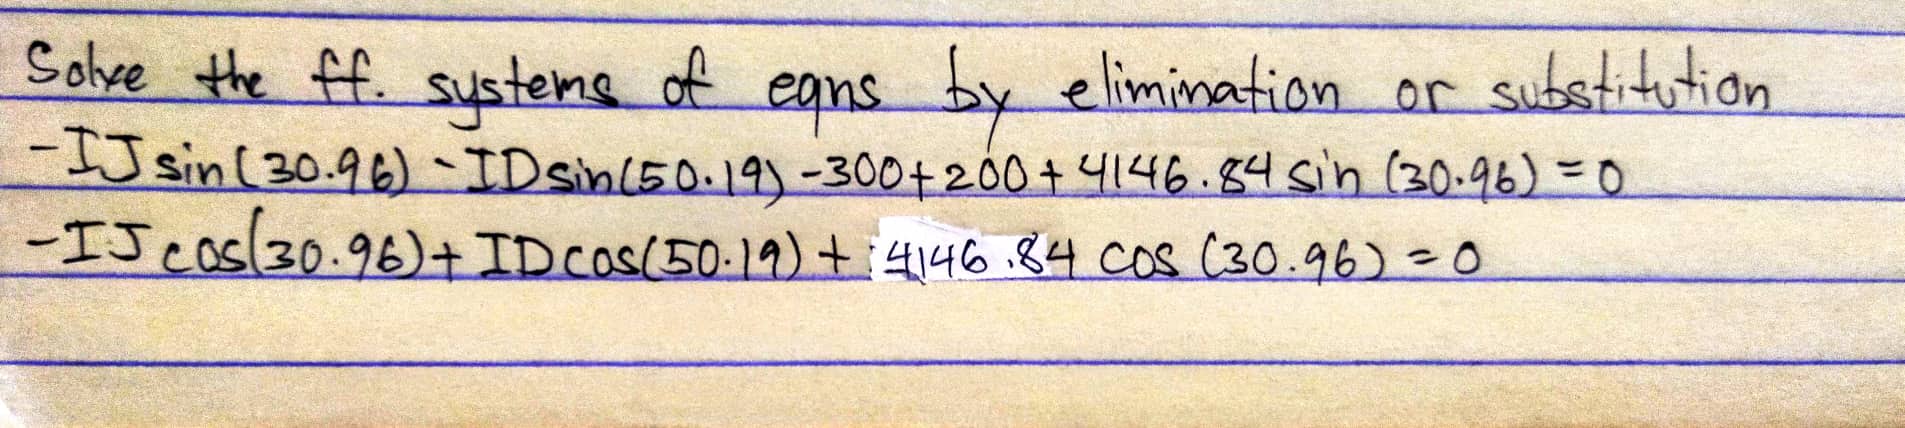 Solve the ff. systems of eqns by elimination or substitution
-IJ sin(30.96) - ID sin(50.19) -300+200+ 4146.84 sin (30.96) = 0
-IJ cos(30.96)+ ID cos(50.19) + 4146.84 cos (30.96) = 0